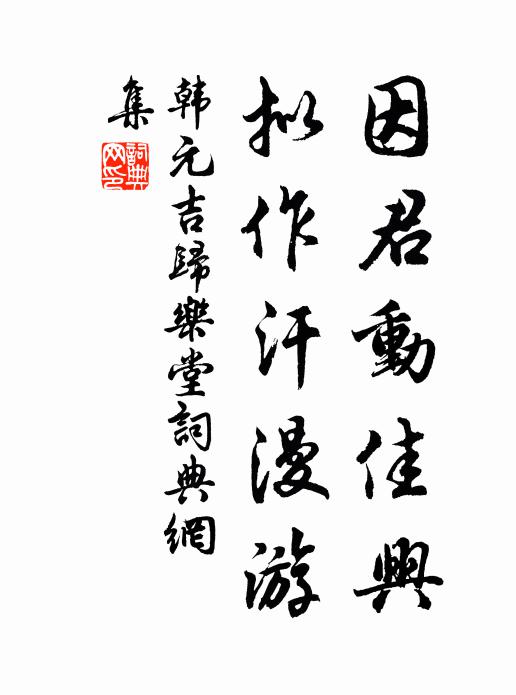 因君動佳興
拟作汗漫游
韩元吉歸樂堂詞典網
集
詞典
网印